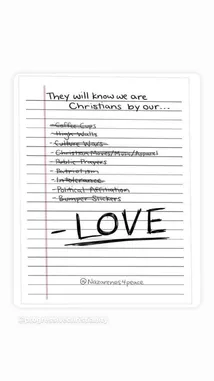 They will know we are
Christians by our...
- Coffee Cups
- High Walls
- Culture Wars
- Christian Movies/Music/Apparel
- Public Prayers
- Patriotism
- Intolerance
- Political Affiliation
- Bumper Stickers
- LOVE
@Nazarenes4peace